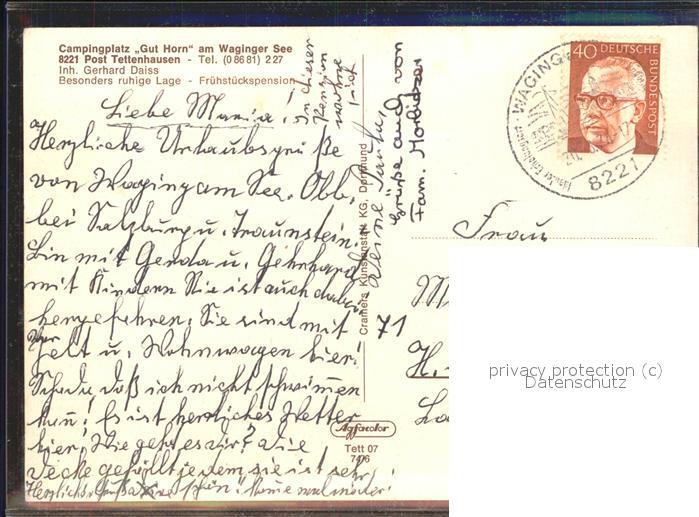 Campingplatz „Gut Horn" am Waginger See
8221 Post Tettenhausen - Tel. (0 86 81) 2 27
Inh. Gerhard Daiss
Besonders ruhige Lage - Frühstückspension
In dieser
Pension
wohne
ich
Liebe Maria!
Herzliche Urlaubsgrüße
von Waging am See. Obb.
bei Salzburg u. Traunstein.
Bin mit Gerda u. Gehrhard
mit Kindern Sie ist auch dabei
hergefahren. Sie sind mit
Zelt u. Wohnwagen hier!
Schade, daß ich nicht schwimmen
kann! Es ist herrliches Wetter
hier! Wie geht es dir? Die
Decke gefällt jedem sie ist sehr
schön!
Deine Tante
Grüße auch von
Fam.
Cramers Kunstanstalt KG, Dortmund
Agfacolor
Tett 07
74/6
71
WAGING
8221
40 DEUTSCHE
BUNDESPOST
Frau
privacy protection (c)
Datenschutz